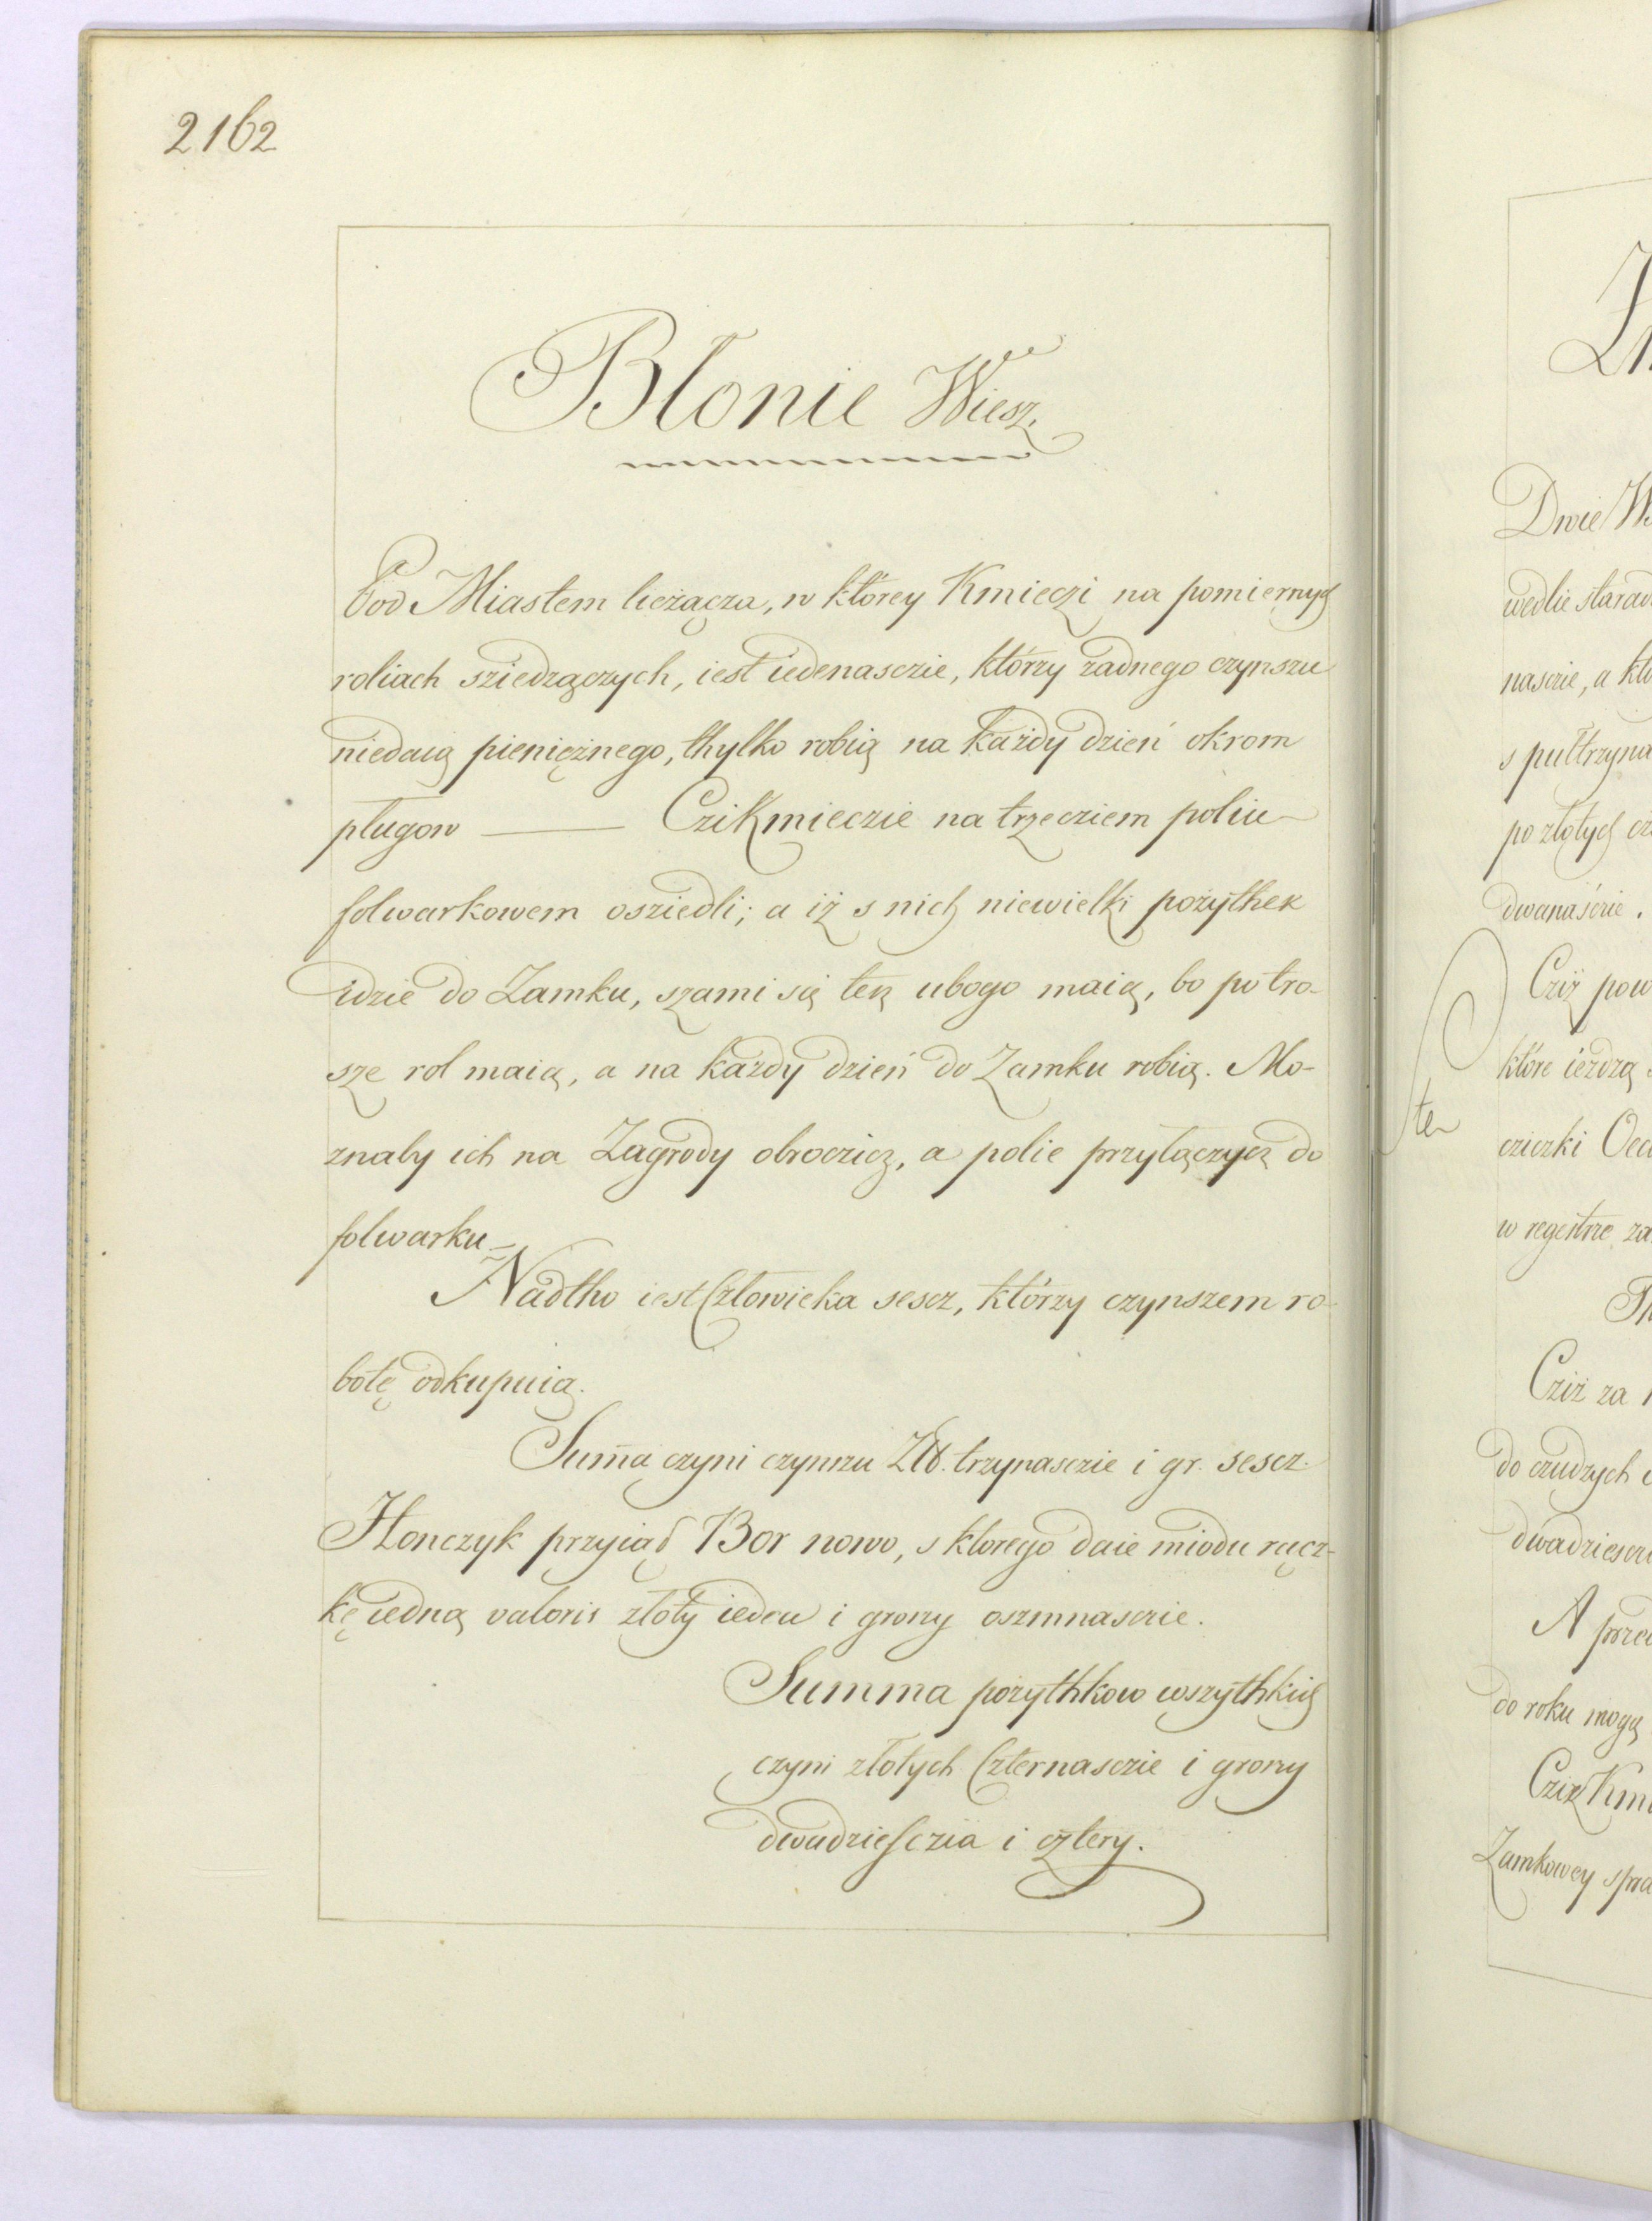 2162
Błonie Wiesz.
Pod Miastem lieżącza, w którey Kmieczi na pomiernych
roliach sziedzączych, iest iedenasczie, którzy żadnego czynszu
niedaią pieniężnego, thylko robią na każdy dzień okrom
pługow ——— Czi Kmieczie na trzecziem poliu
folwarkowem osziedli; a iż s nich niewielki pożythek
idzie do Zamku, szami się tez ubogo maią, bo po tro-
sze rol maią, a na każdy dzień do Zamku robią. Mo-
znaby ich na Zagrody obroczicz, a polie przyłączycz do
folwarku_
Nadtho iest Człowieka sescz, którzy czynszem ro-
botę odkupuią.
Summa czyni czynszu Złt. trzynasczie i gr. sescz.
Honczyk przyiął Bor nowo, s ktorego daie miodu rącz-
kę iedną valoris złoty ieden i groszy oszmnasczie.
Summa pożythkow wszythkich
czyni złotych Czternasczie i groszy
dwadziesczia i cztery.
Dwie W
wedlie
nasczie, a
po złotych
dwanaście.
Cziż
które ieżdżą
ter
w regestrze za
Cziż za
do cudzych
A przed
do roku mogą
Cziż
Zamkowey